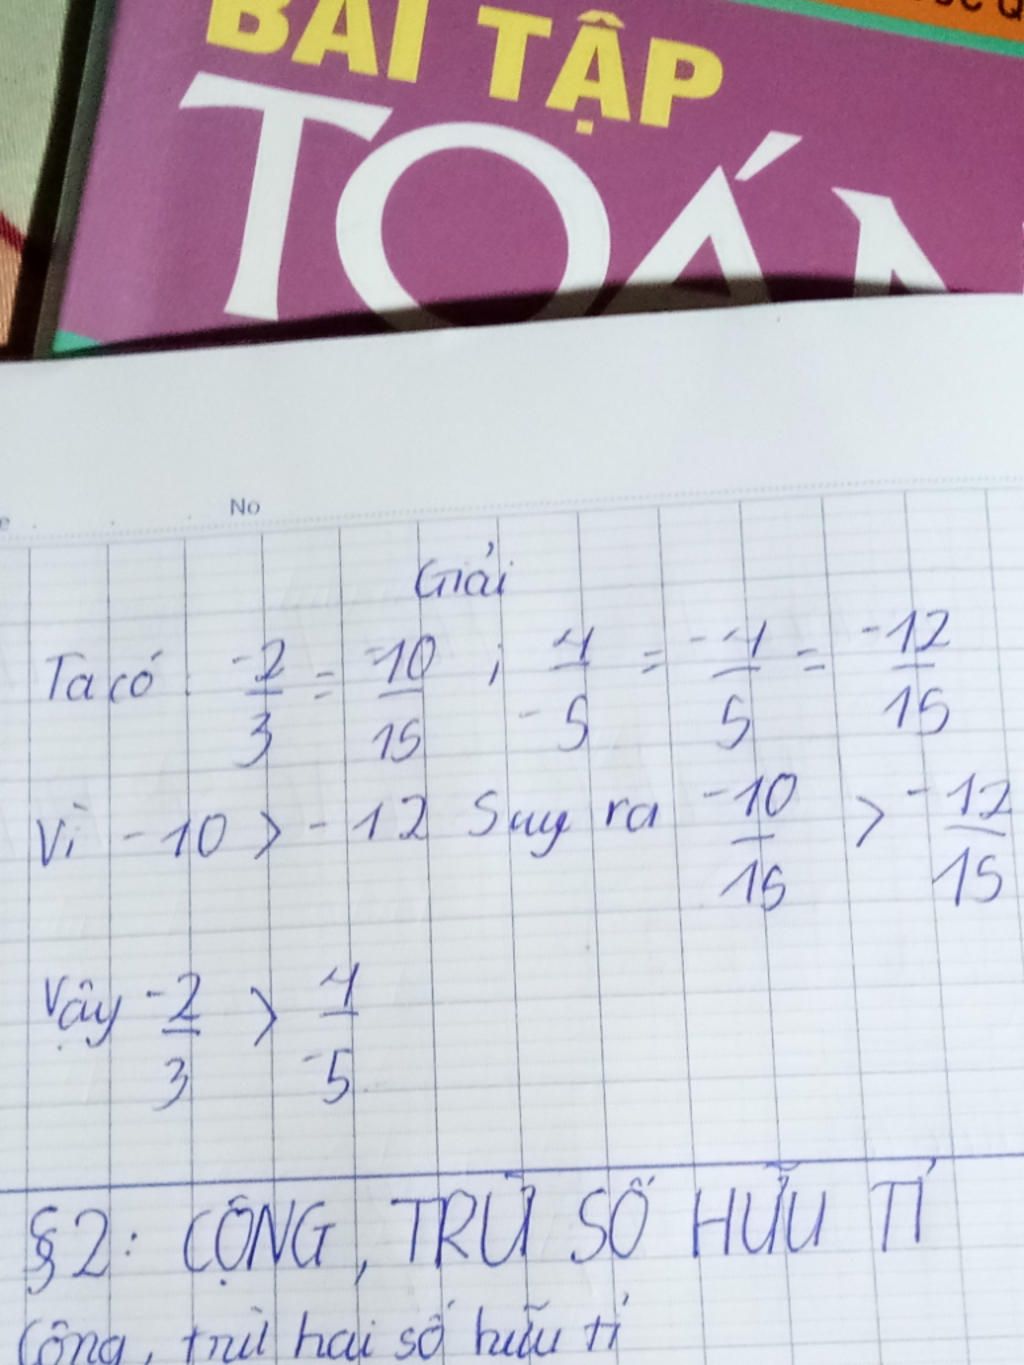 BÀI TẬP
TOÁN
No
Giải
Ta có: -2/3 = -10/15 ; 4/-5 = -4/5 = -12/15
Vì -10 > -12 Suy ra -10/15 > -12/15
Vậy -2/3 > 4/-5
§2: CỘNG, TRỪ SỐ HỮU TỈ
Cộng, trừ hai số hữu tỉ